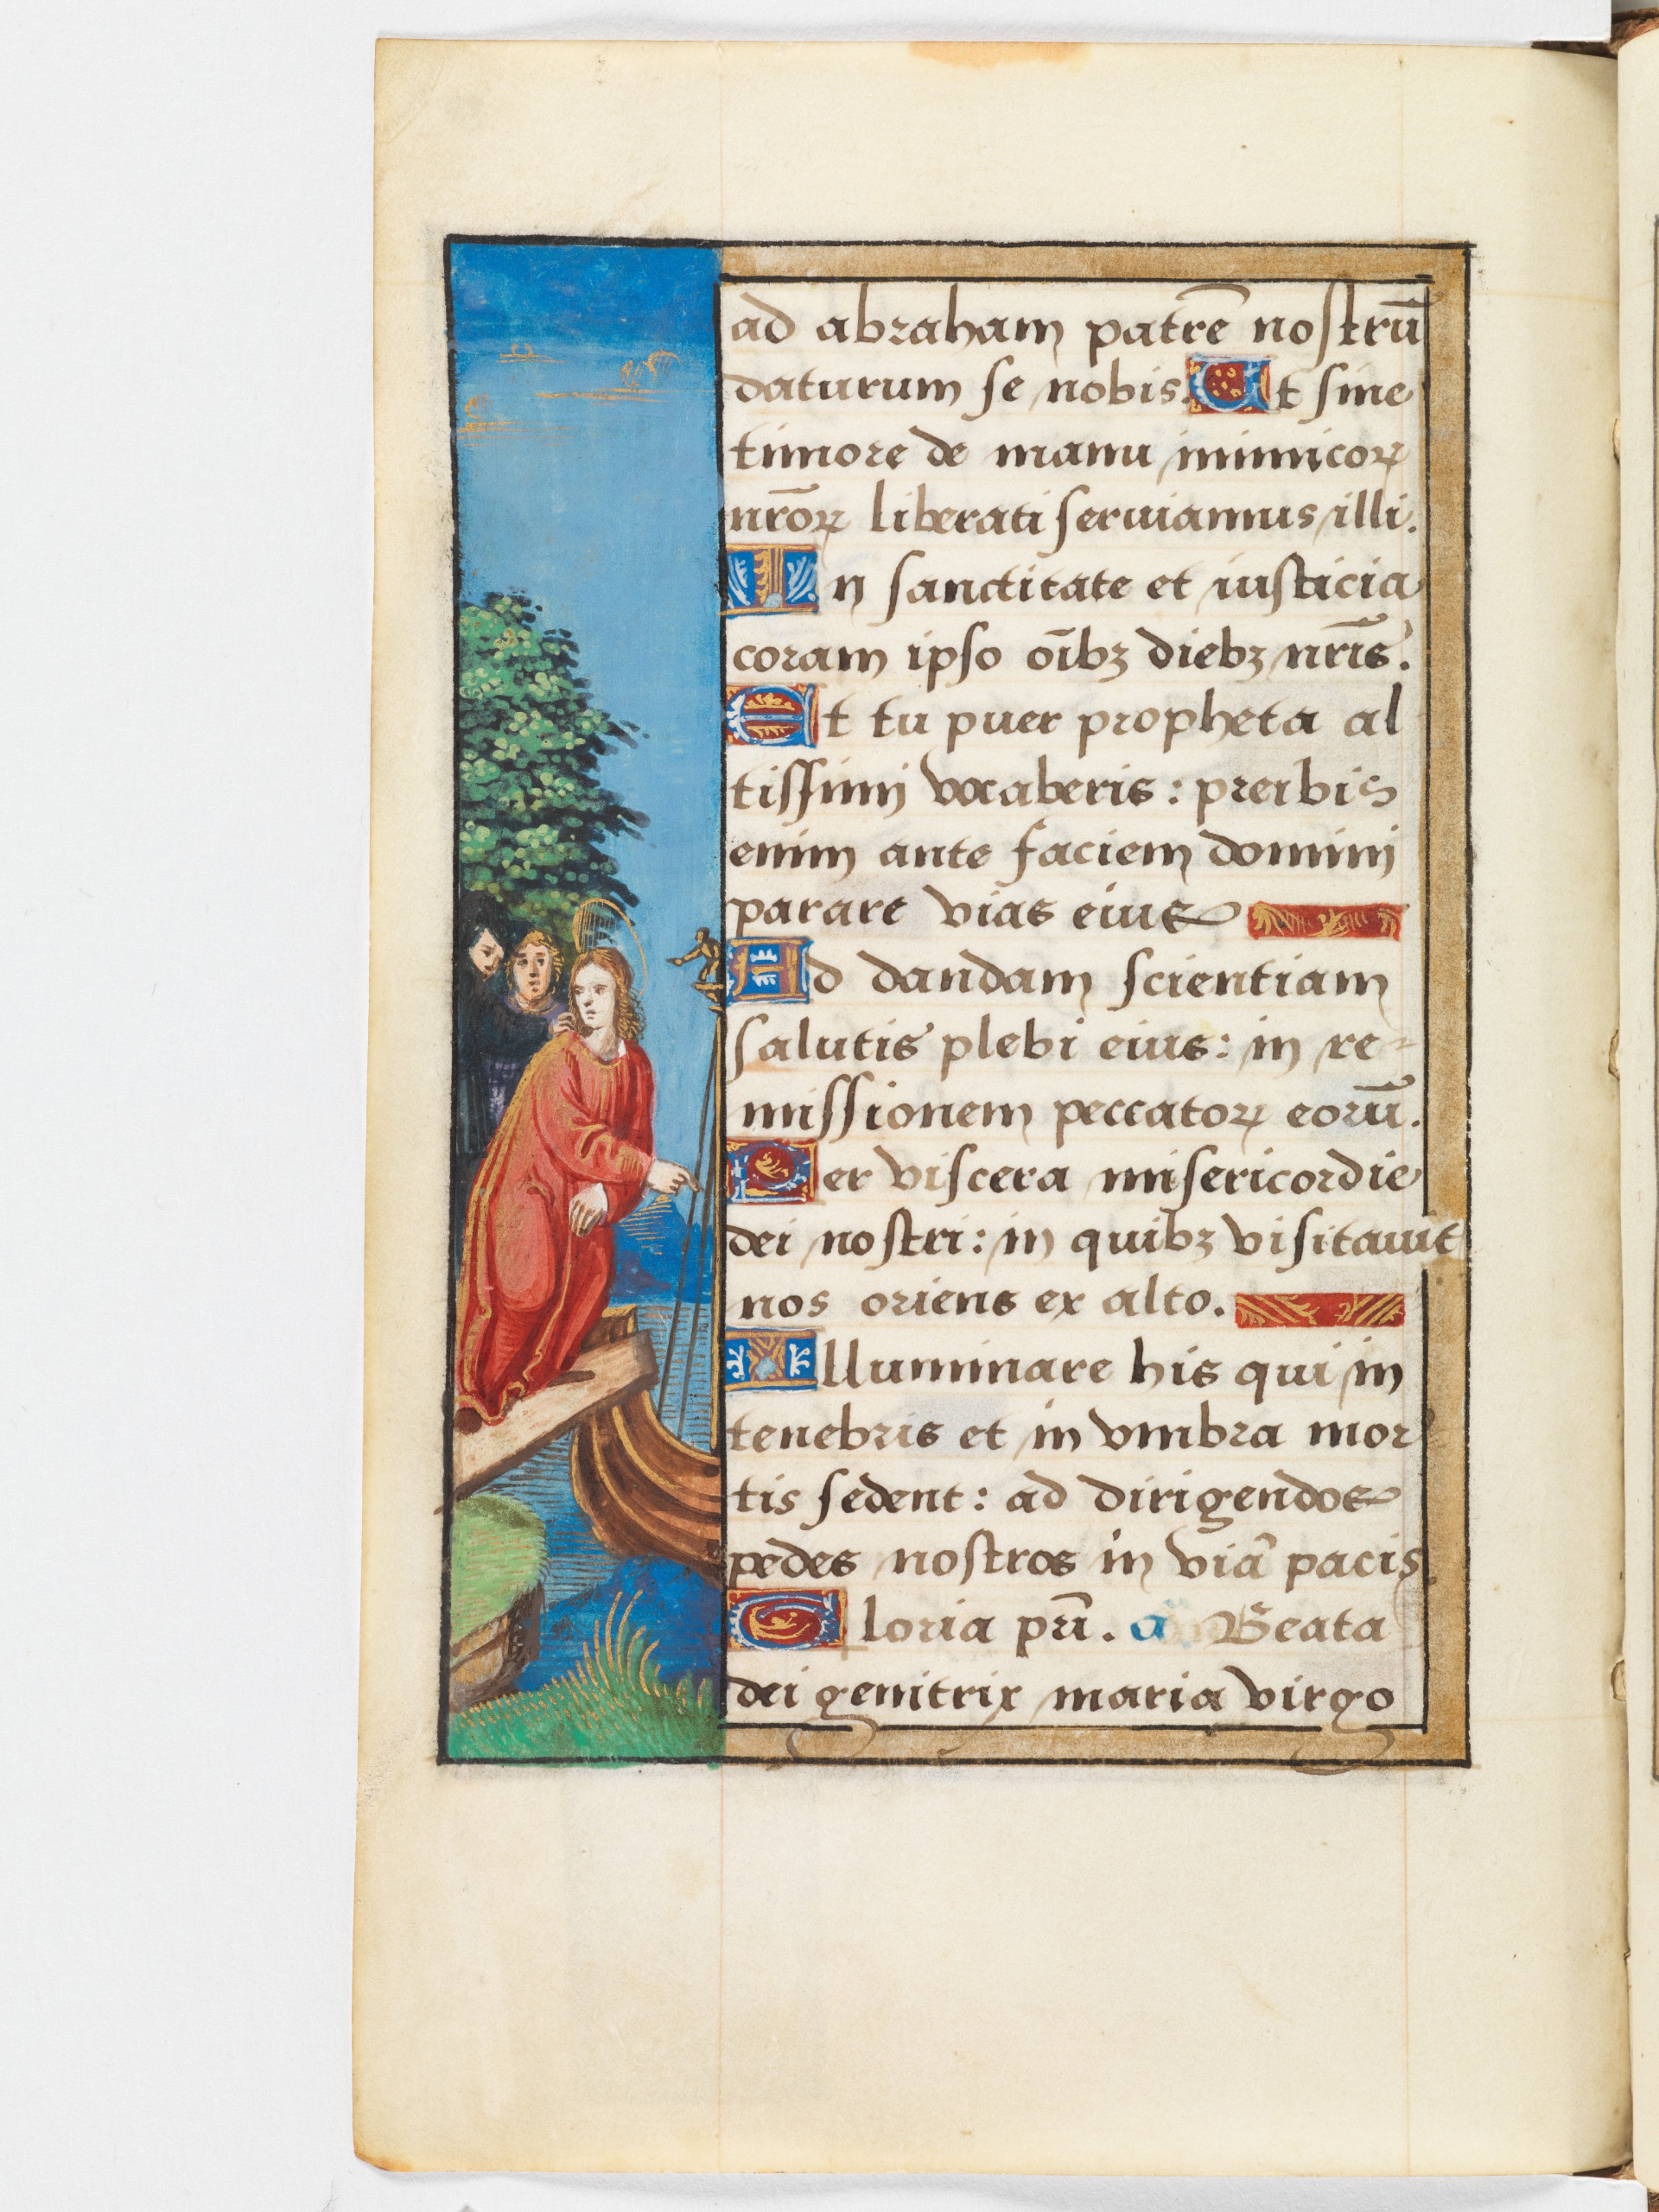 ad abraham patrē nostrū
daturum se nobis. Vt sine
timore de manu inimicoꝝ
nr̄oꝝ liberati seruiamus illi.
In sanctitate et iusticia
coram ipso oībꝫ diebꝫ nr̄is.
Et tu puer propheta al
tissimi vocaberis: preibis
enim ante faciem domini
parare vias eius
Ad dandam scientiam
salutis plebi eius: in re-
missionem peccatoꝝ eorū.
Per viscera misericordie
dei nostri: in quibꝫ visitauit
nos oriens ex alto.
Illuminare his qui in
tenebris et in vmbra mor
tis sedent: ad dirigendos
pedes nostros in viā pacis
Gloria pr̄i. a Beata
dei genitrix maria virgo